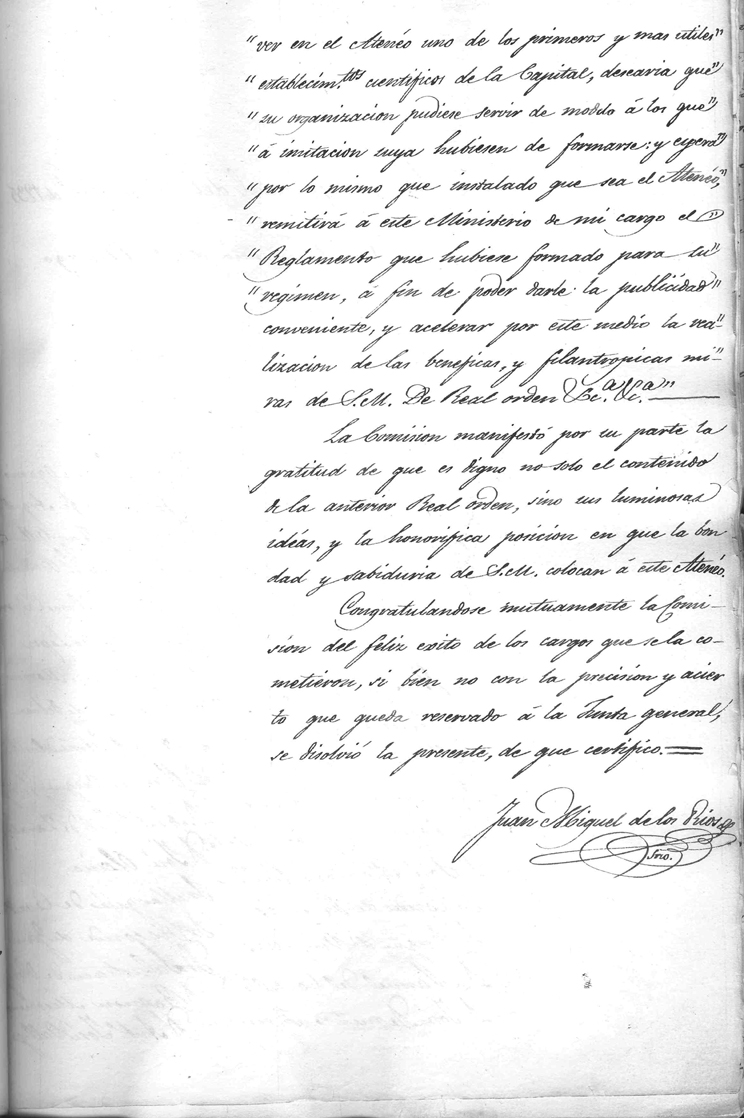 "ver en el Atenéo uno de los primeros y mas utiles"
"establecim.tos cientificos de la Capital, desearia que"
"su organizacion pudiese servir de modélo á los que"
"á imitacion suya hubiesen de formarse: y espera"
"por lo mismo que instalado que sea el Atenéo,"
"remitirá á este Ministerio de mi cargo el"
"Reglamento que hubiese formado para su"
"regimen, á fin de poder darle la publicidad"
conveniente, y acelerar por este medio la rea-"
lizacion de las beneficas, y filantropicas mi-"
ras de S.M. De Real orden &c.a &c.a"
La Comision manifestó por su parte la
gratitud de que es digno no solo el contenido
de la anterior Real orden, sino sus luminosas
idéas, y la honorifica posicion en que la bon
dad y sabiduria de S.M. colocan á este Atenéo.
Congratulandose mutuamente la Comi-
sion del feliz exito de los cargos que se la co-
metieron, si bien no con la precision y acier
to que queda reservado á la Junta general,
se disolvió la presente, de que certifico.=
Juan Miguel de los Rios
Srio.